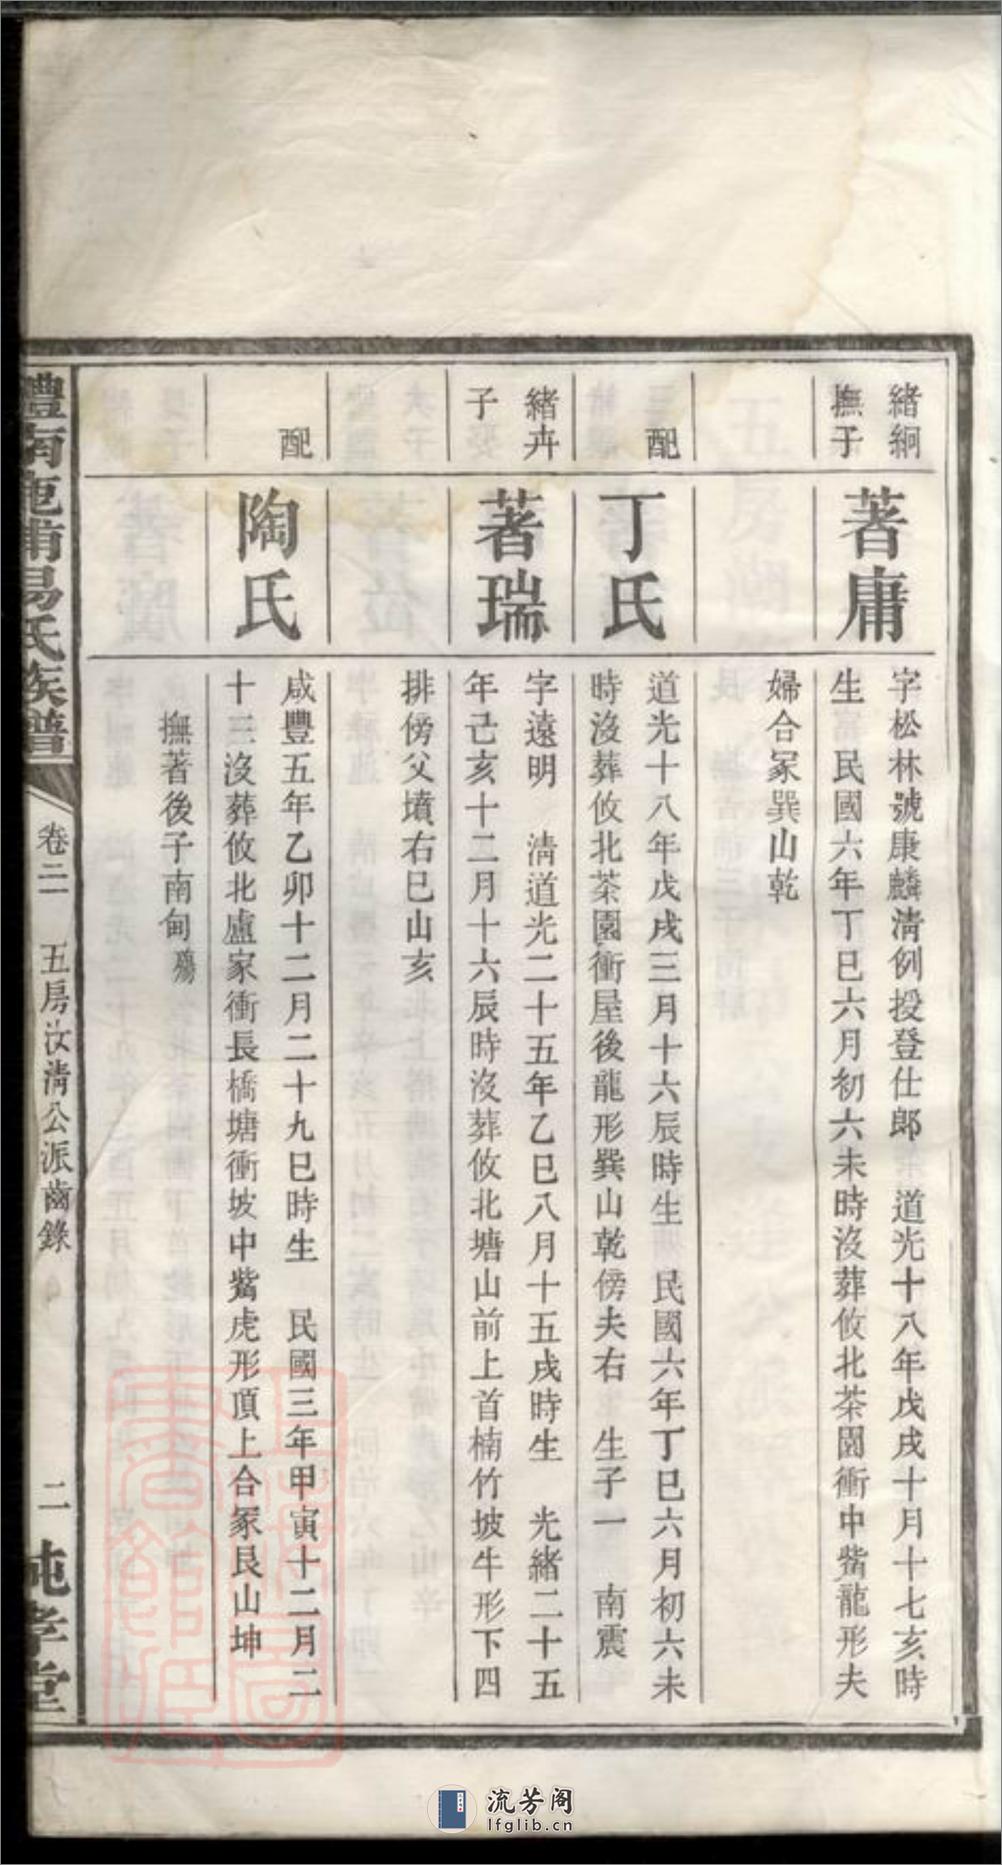 緒絅
撫子
著庸
字松林號康麟清例授登仕郎 道光十八年戊戌十月十七亥時
生 民國六年丁巳六月初六未時沒葬攸北茶園衝中觜龍形夫
婦合冢巽山乾
配
丁氏
道光十八年戊戌三月十六辰時生 民國六年丁巳六月初六未
時沒葬攸北茶園衝屋後龍形巽山乾傍夫右 生子一 南震
緒卉
子
著瑞
字遠明 清道光二十五年乙巳八月十五戌時生 光緒二十五
年己亥十二月十六辰時沒葬攸北塘山前上首楠竹坡牛形下四
排傍父墳右巳山亥
配
陶氏
咸豐五年乙卯十二月二十九巳時生 民國三年甲寅十二月二
十三沒葬攸北盧家衝長橋塘衝坡中觜虎形頂上合冢艮山坤
撫著後子南甸 殤
醴南 易氏族譜
卷二 五房汝清公派齒錄 二 純孝堂
流芳阁
lfglib.cn